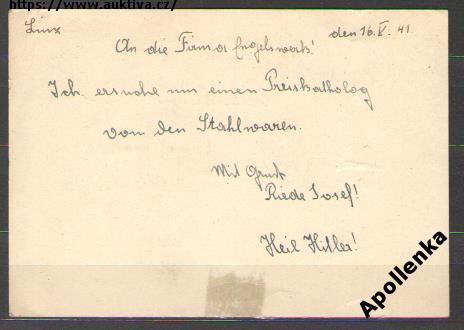 https://www.auktiva.cz/
Linz den 16. V. 41
An die Firma Engelswerk!
Ich ersuche um einen Preiskatholog
von den Stahlwaren.
Mit Gruß
Riede Josef!
Heil Hitler!
Apollenka